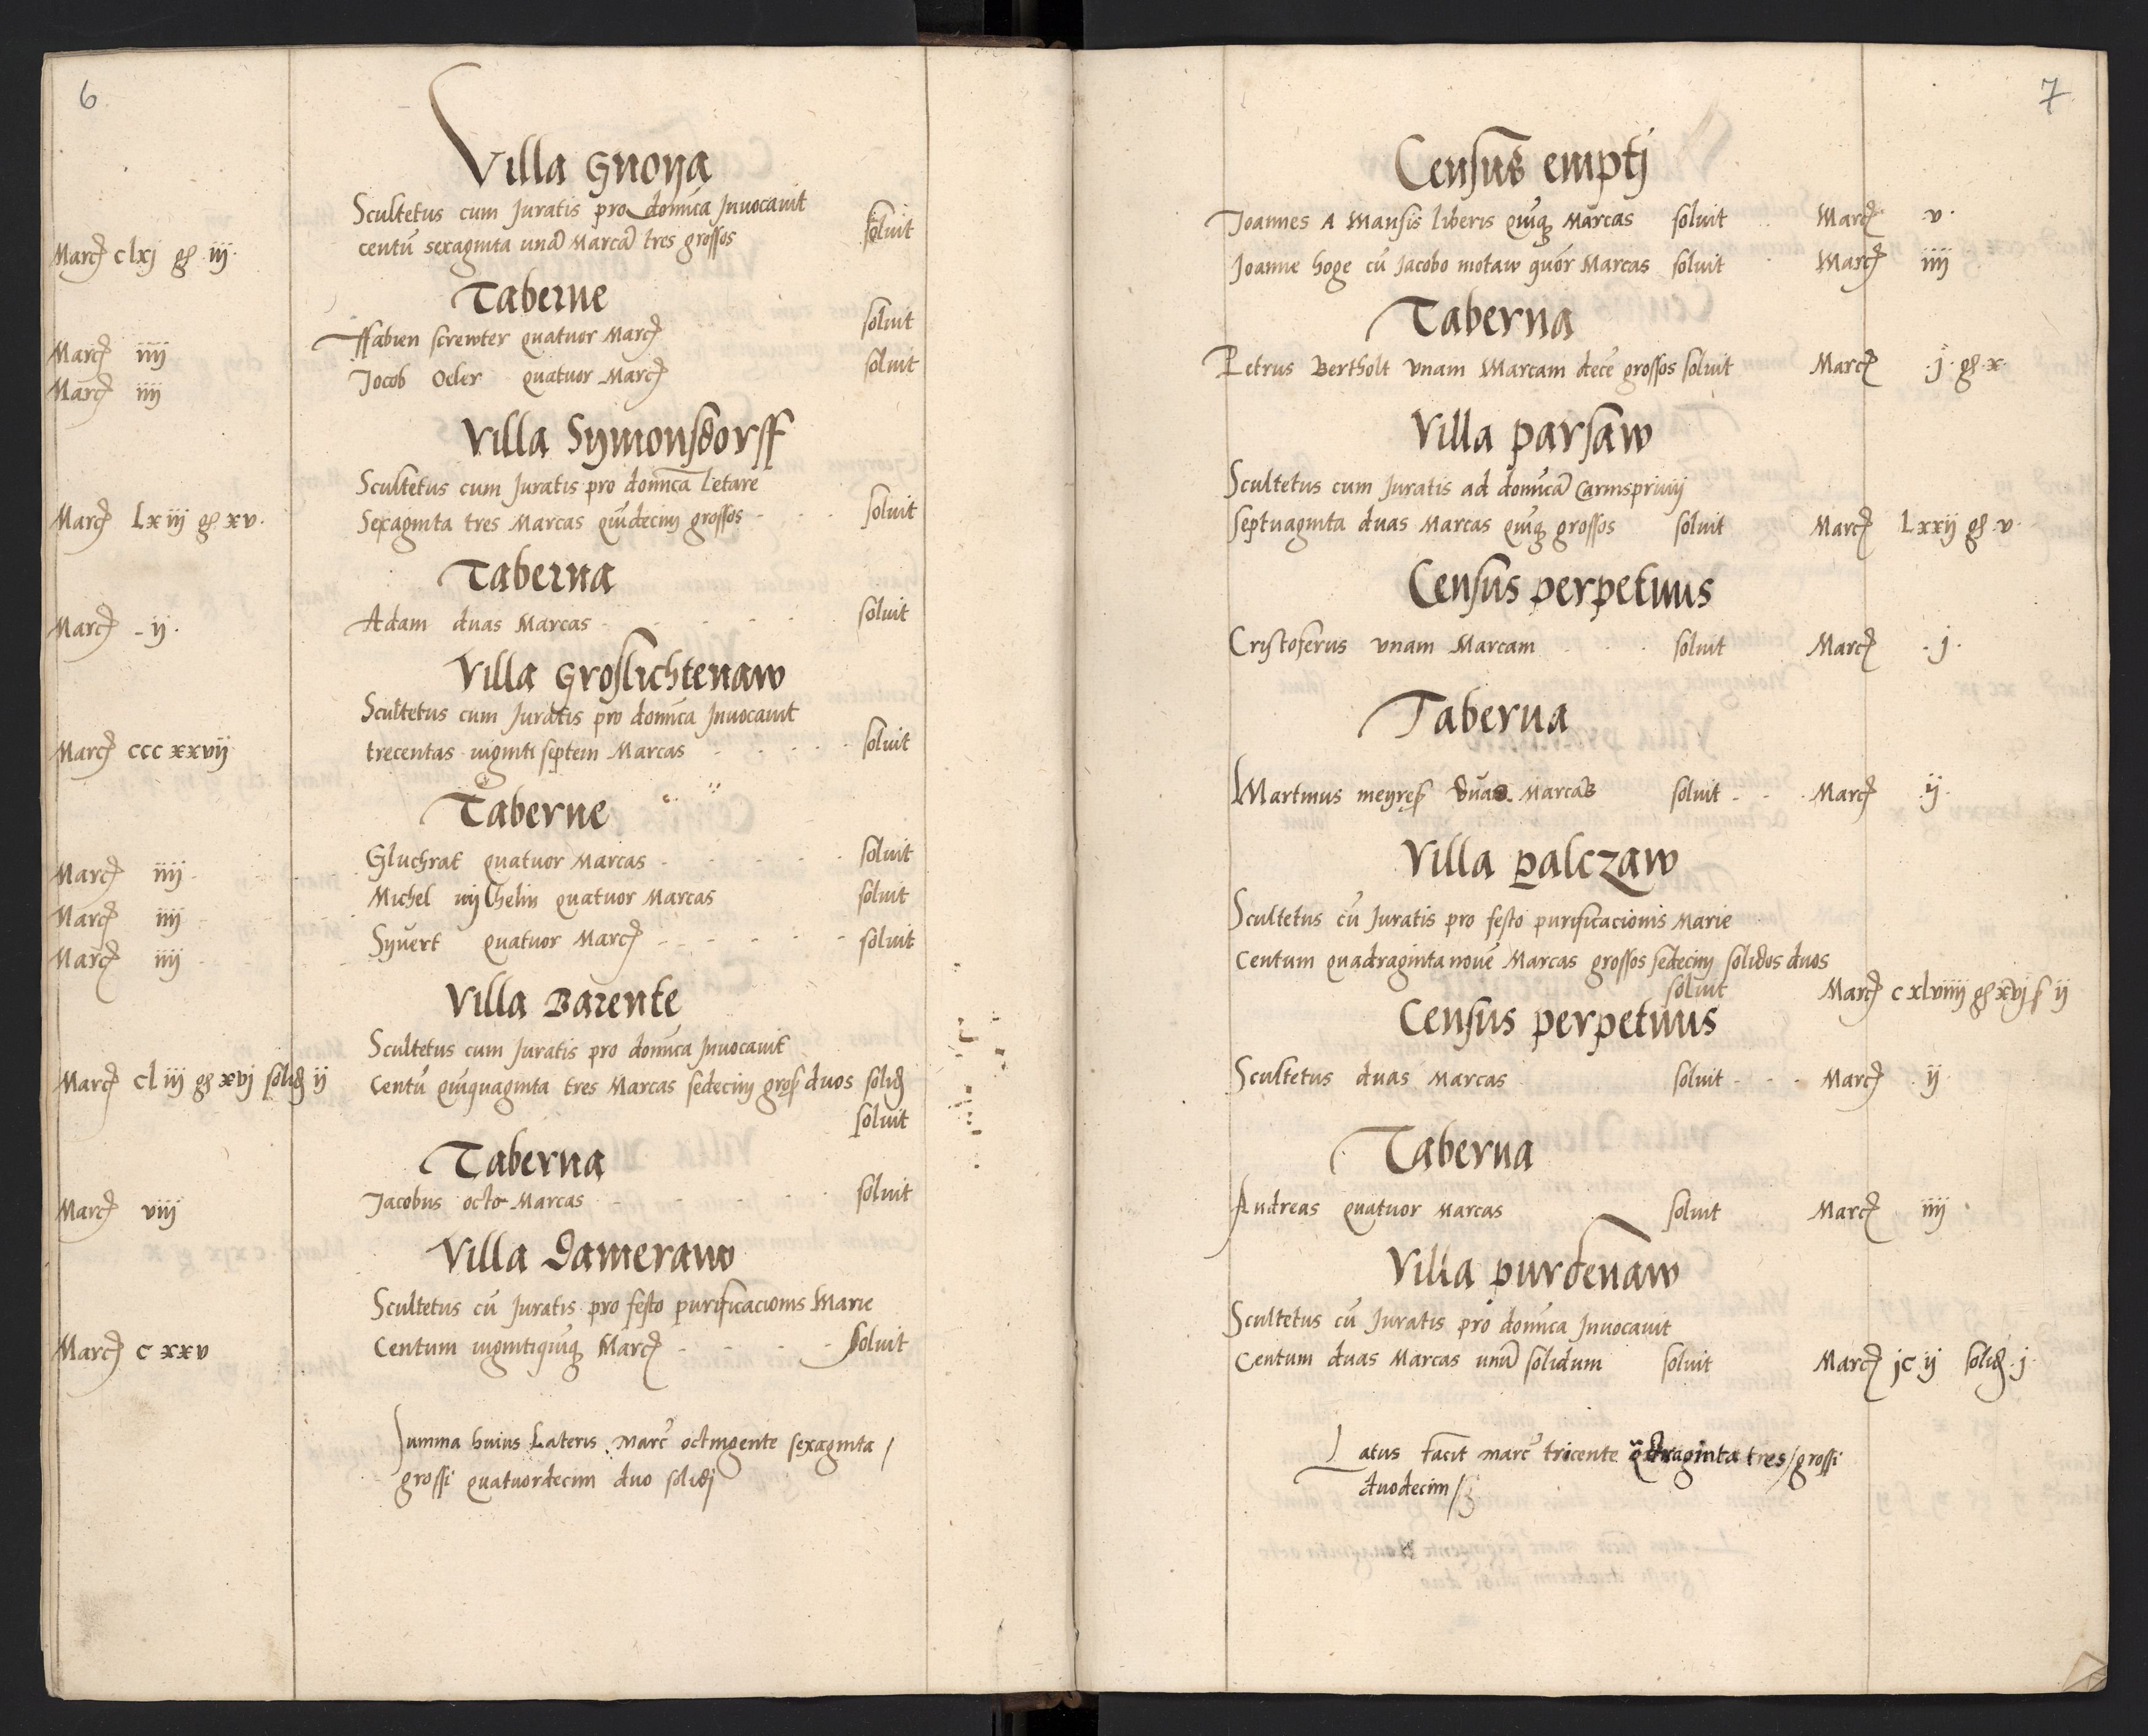 6
Villa Gnoya
Scultetus cum Juratis pro domica Jnuocauit
Marcȝ clxj gͬ iij · centū sexaginta unā Marcā tres grossos soluit
Taberne
Marcȝ iiij ffabien screwter quatuor Marcȝ soluit
Marcȝ iiij Jocob Oeler quatuor Marcȝ soluit
Villa Symonsdorff
Scultetus cum Juratis pro domīca Letare
Marcȝ Lxiij gͬ xv · Sexaginta tres Marcas qūidecim grossos soluit
Taberna
Marcȝ ij · Adam duas Marcas soluit
Villa Groslichtenaw
Scultetus cum Juratis pro domīca Jnuocauit
Marcȝ ccc xxvij trecentas uiginti septem Marcas soluit
Taberne
Marcȝ iiij Gluchrat quatuor Marcas soluit
Marcȝ iiij Michel quatuor Marcas soluit
Marcȝ iiij Syuert quatuor Marcȝ soluit
Villa Barente
Scultetus cum Juratis pro domīca Jnuocauit
Marcȝ cl iij gͬ xvj solidȝ ij Centū qūiquaginta tres Marcas sedecim gross duos solidȝ
soluit
Taberna
Marcȝ viij Jacobus octo Marcas soluit
Villa Dameraw
Scultetus cū Juratis pro festo purificacionis Marie
Marcȝ c xxv Centum uigintiqūiqȝ Marcȝ soluit
Summa huius Lateris Marc̄ octingente sexaginta /
grossi quatuordecim duo solidj
7
Census emptj
Joannes A Mansis liberis qūiqȝ Marcas soluit Marcȝ v ·
Joanne hoge cū Jacobo motaw quor Marcas soluit Marcȝ iiij
Taberna
Petrus Bertholt vnam Marcam decē grossos soluit Marcȝ · j · gͬ · x ·
Villa parsaw
Scultetus cum Juratis ad domīcā Carnispriuij
septuaginta duas Marcas qūiqȝ grossos soluit Marcȝ Lxxij gͬ · v ·
Census perpetuus
Cristoferus vnam Marcam soluit Marcȝ · j ·
Taberna
Martinus duas Marcas soluit Marcȝ · ij ·
Villa palczaw
Scultetus cū Juratis pro festo purificacionis Marie
Centum quadraginta nouē Marcas grossos sedecim solidos duos
soluit Marcȝ c xlviiij gͬ xvj ß ij
Census perpetuus
Scultetus duas Marcas soluit Marcȝ ij
Taberna
Andreas quatuor Marcas soluit Marcȝ iiij
Villa purdenaw
Scultetus cū Juratis pro domīca Jnuocauit
Centum duas Marcas unū solidum soluit Marcȝ jc ij solidȝ · j ·
Latus facit marc̄ tricente qdraginta tres / grossi
duodecim /